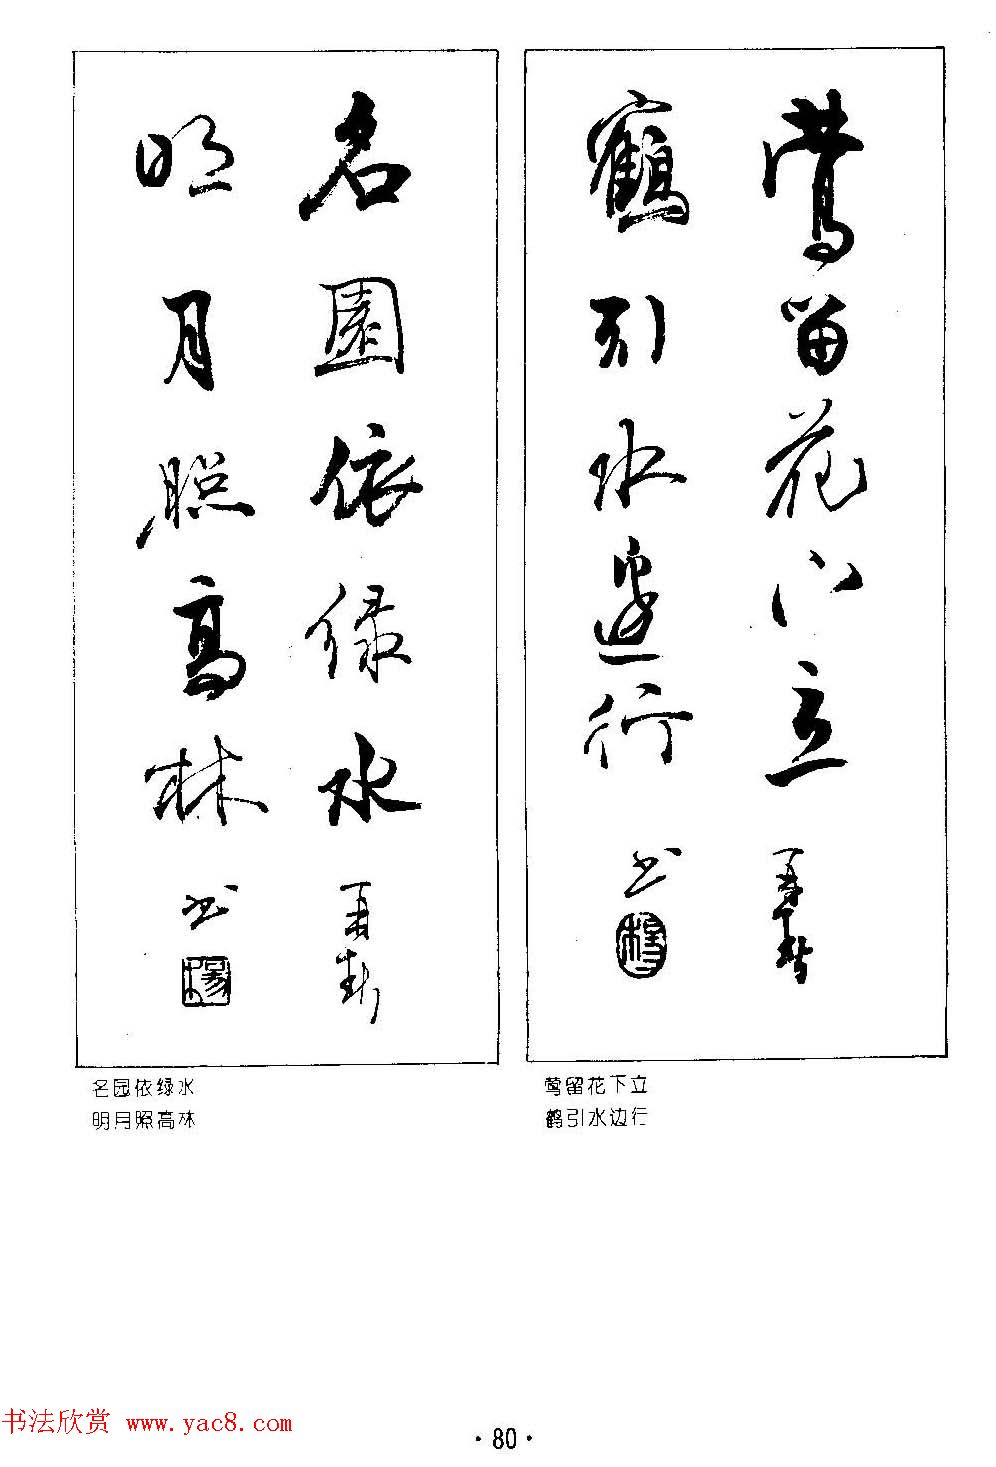 鶯留花下立
鶴引水邊行
书
名園依绿水
明月照高林
书
莺留花下立
鹤引水边行
名园依绿水
明月照高林
书法欣赏 www.yac8.com
·80·